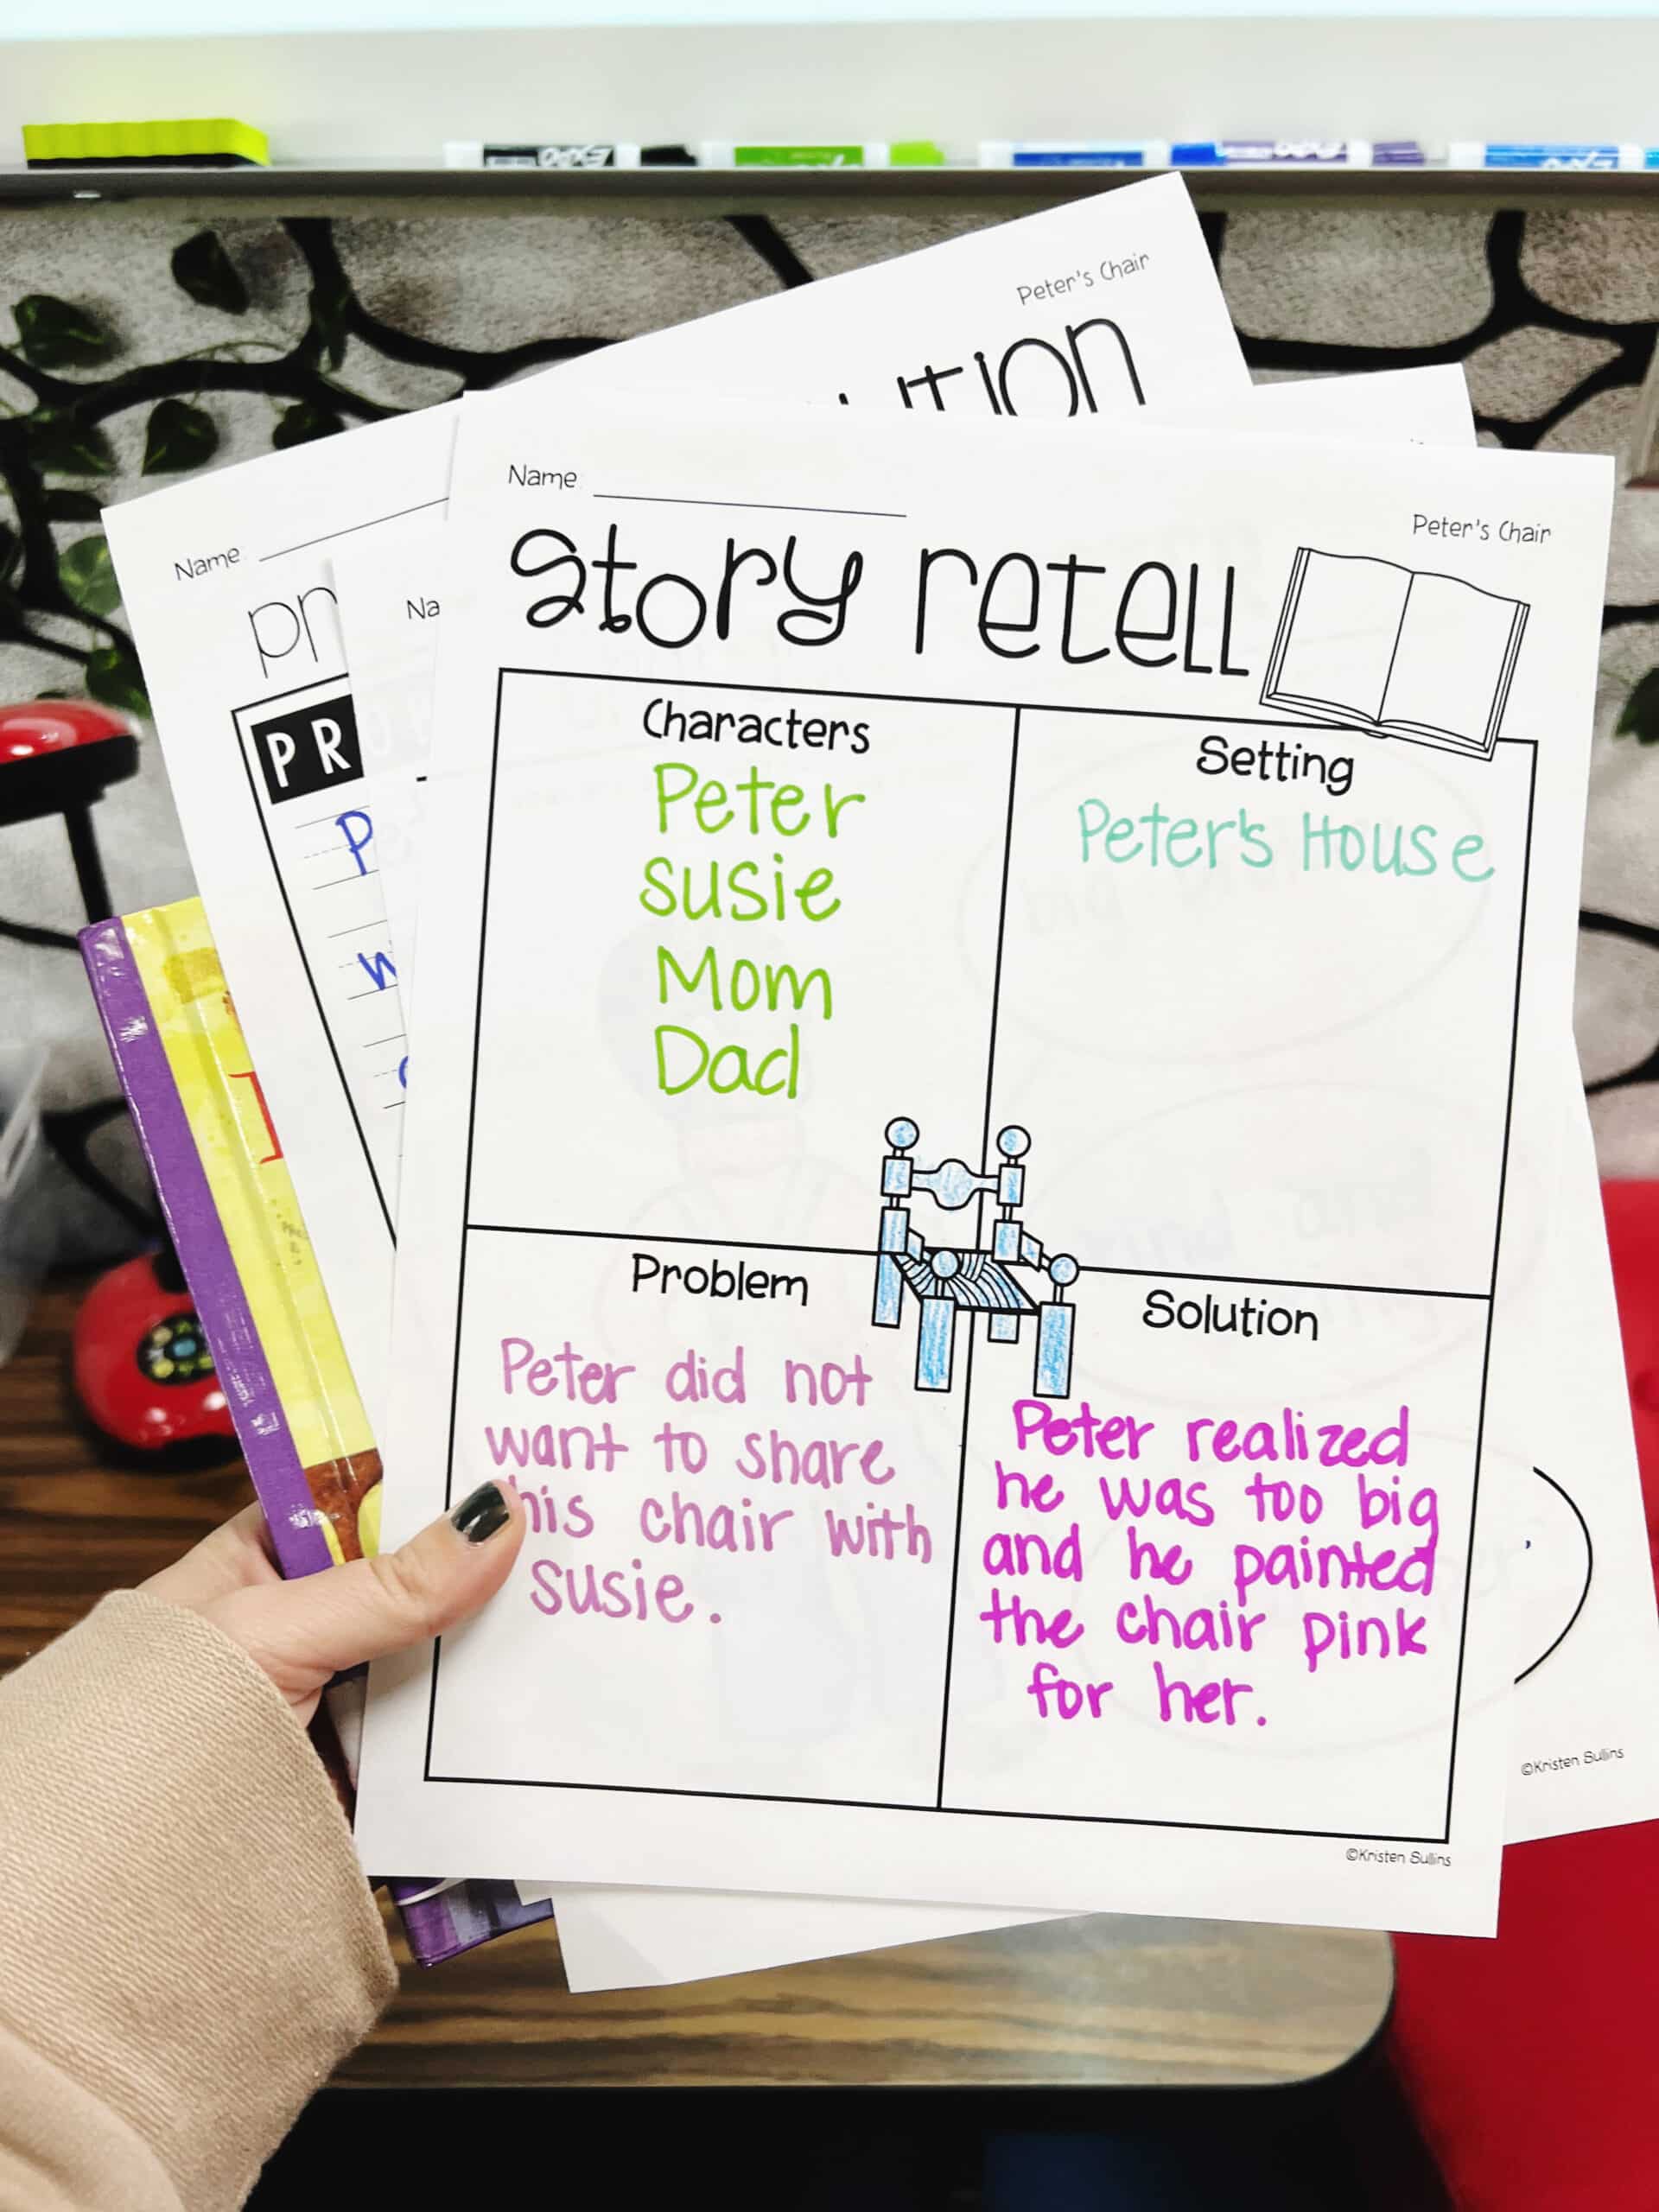 EXPO
EXPO
EXPO
Peter's Chair
Name
Peter's Chair
story retell
Characters
Peter
Susie
Mom
Dad
Setting
Peter's House
Problem
Peter did not
want to share
his chair with
Susie.
Solution
Peter realized
he was too big
and he painted
the chair pink
for her.
©Kristen Sullins
Name:
©Kristen Sullins